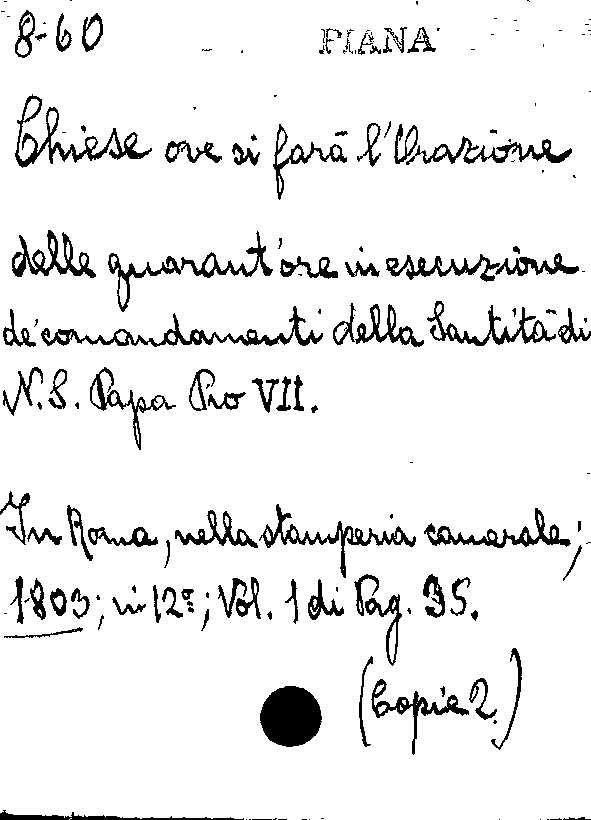 8-60 PIANA
Chiese ove si farà l'Orazione
delle quarant'ore in esecuzione
de' comandamenti della Santità di
N.S. Papa Pio VII.
In Roma, nella stamperia camerale;
1803; in 12º; Vol. 1 di Pag. 35.
(Copie 2.)